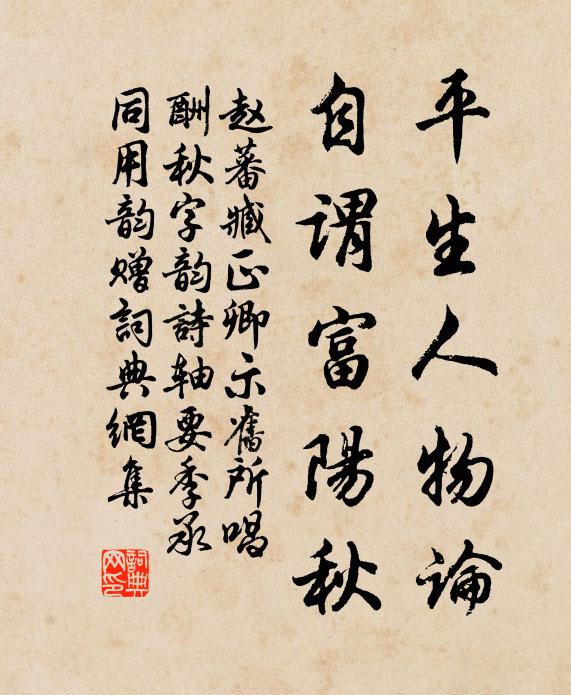 平生人物論
自謂富陽秋
赵蕃臧正卿示舊所唱
酬秋字韵詩轴要季承
同用韵赠詞典網集
詞典网印